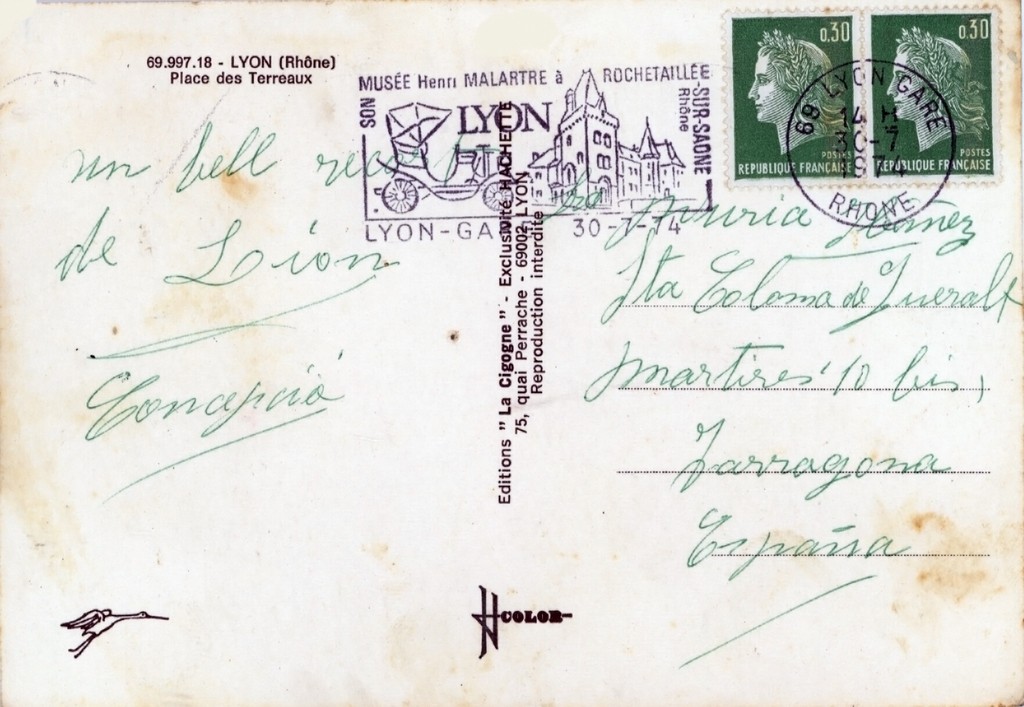 69.997.18 - LYON (Rhône)
Place des Terreaux
SON MUSÉE Henri MALARTRE à ROCHETAILLÉE-SUR-SAONE
Rhône
LYON
LYON-GARE 30-7-74
0.30
0.30
POSTES
REPUBLIQUE FRANÇAISE
POSTES
REPUBLIQUE FRANÇAISE
69 LYON GARE
14 H
30-7
1974
RHONE
un bell record
de Lión
Concepció
Editions "La Cigogne" - Exclusivité HACHETTE
75, quai Perrache - 69002 LYON
Reproduction interdite
Nuria
Sta Coloma de Queralt
Martires 10 bis,
Tarragona
España
COLOR